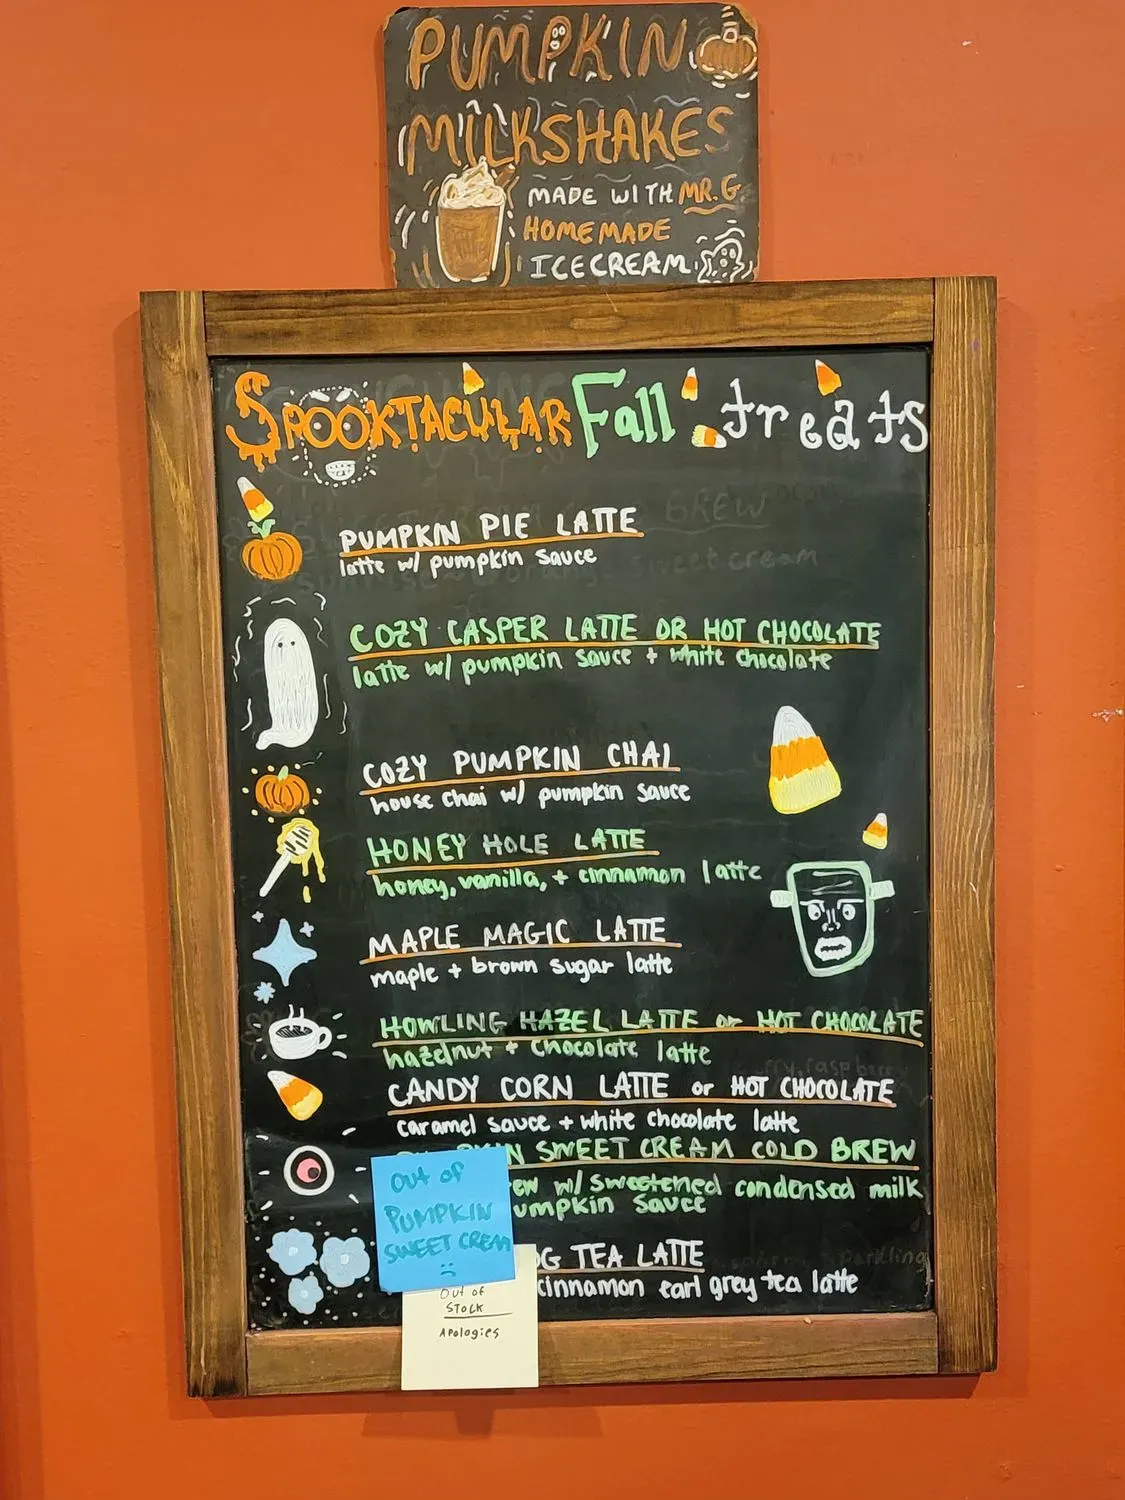 PUMPKIN
MILKSHAKES
MADE WITH MR.G
HOMEMADE
ICECREAM
SPOOKTACULAR Fall treats
PUMPKIN PIE LATTE
latte w/ pumpkin sauce
COZY CASPER LATTE OR HOT CHOCOLATE
latte w/ pumpkin sauce + white chocolate
COZY PUMPKIN CHAI
house chai w/ pumpkin sauce
HONEY HOLE LATTE
honey, vanilla, + cinnamon latte
MAPLE MAGIC LATTE
maple + brown sugar latte
HOWLING HAZEL LATTE or HOT CHOCOLATE
hazelnut + chocolate latte
CANDY CORN LATTE or HOT CHOCOLATE
caramel sauce + white chocolate latte
SWEET CREAM COLD BREW
w/ sweetened condensed milk
umpkin sauce
OG TEA LATTE
cinnamon earl grey tea latte
Out of
PUMPKIN
SWEET CREAM
Out of
STOCK
Apologies